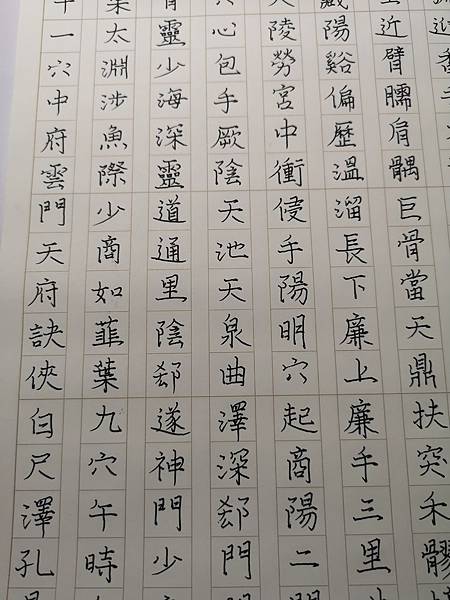 十一穴中府雲門天府訣俠白尺澤孔
太淵涉魚際少商如韮葉九穴午時
靈少海深靈道通里陰郄遂神門少
心包手厥陰天池天泉曲澤深郄門
陵勞宮中衝侵手陽明穴起商陽二
陽谿偏歷溫溜長下廉上廉手三里
近臂臑肩髃巨骨當天鼎扶突禾髎